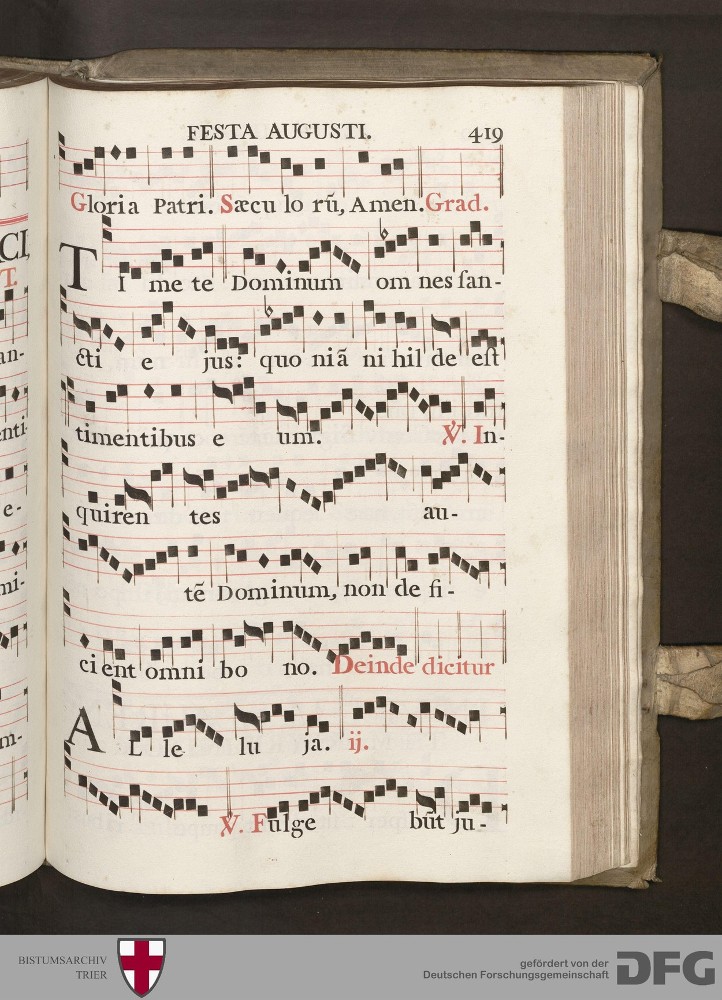 FESTA AUGUSTI. 419
Gloria Patri. Sæcu lo rũ, Amen. Grad.
TI me te Dominum om nes san-
cti e jus: quo niã ni hil de est
timentibus e um. ℣. In-
quiren tes au-
tẽ Dominum, non de fi-
ci ent omni bo no. Deinde dicitur
AL le lu ja. ij.
℣. Fulge bũt ju-
CI,
T.
an-
enti
e-
mi-
m-
BISTUMSARCHIV
TRIER
gefördert von der
Deutschen Forschungsgemeinschaft
DFG